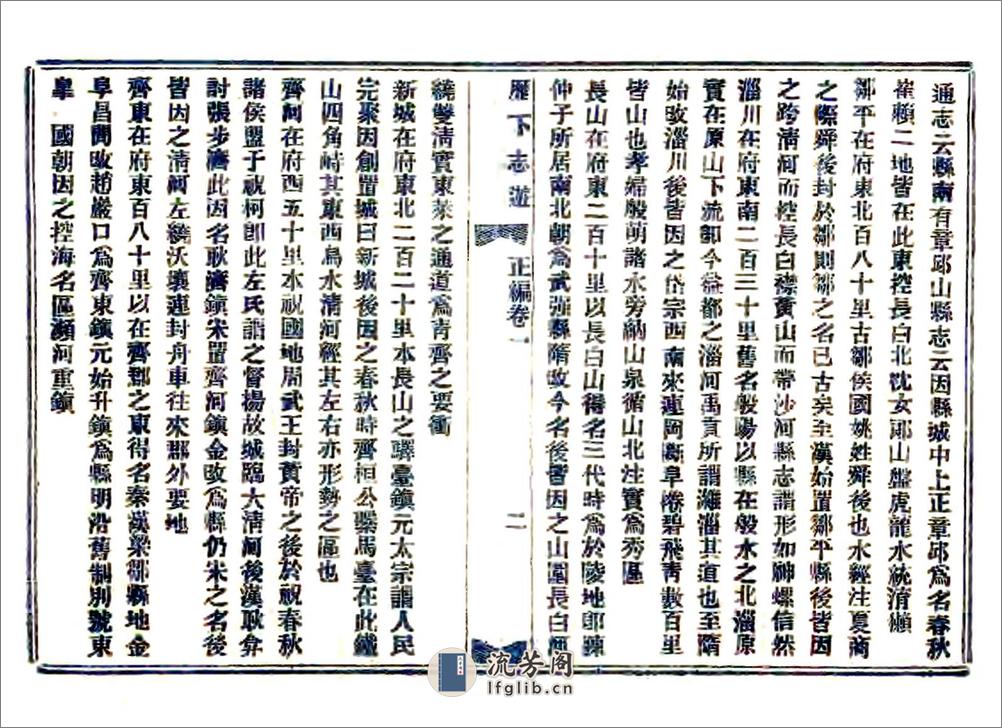 通志云縣南有章邱山縣志云因縣城中上正章邱爲名春秋
崔賴二地皆在此東控長白北枕女郎山盤虎龍水統淯瀨
鄒平在府東北百八十里古鄒侯國姚姓舜後也水經注夏商
之際舜後封於鄒則鄒之名已古矣至漢始置鄒平縣後皆因
之跨清河而控長白襟黃山而帶沙河縣志謂形如神螺信然
淄川在府東南二百三十里舊名般陽以縣在般水之北淄原
實在原山下流卽今益都之淄河禹貢所謂濰淄其道也至隋
始改淄川後皆因之岱宗西南來連岡斷阜捲碧飛靑數百里
皆山也孝婦般萌諸水旁納山泉循山北注實爲秀區
長山在府東二百十里以長白山得名三代時爲於陵地卽陳
仲子所居南北朝爲武强縣隋改今名後皆因之山圍長白
歷下志遊 正編卷一 二
繞雙淸實東萊之通道爲靑齊之要衝
新城在府東北二百二十里本長山之驛臺鎭元太宗謂人民
完聚因創置城曰新城後因之春秋時齊桓公繫馬臺在此鐵
山四角峙其東西烏水淸河經其左右亦形勢之區也
齊河在府西五十里本祝國地周武王封黃帝之後於祝春秋
諸侯盟于祝柯卽此左氏謂之督揚故城臨大淸河後漢耿弇
討張步濟此因名耿濟鎭宋置齊河鎭金改爲縣仍宋之名後
皆因之淸河左繞沃壤連封舟車往來郡外要地
齊東在府東百八十里以在齊郡之東得名秦漢梁鄒縣地金
阜昌間改趙巖口爲齊東鎭元始升鎭爲縣明沿舊制別號東
皋 國朝因之控海名區瀕河重鎭
流芳閣
lfglib.cn